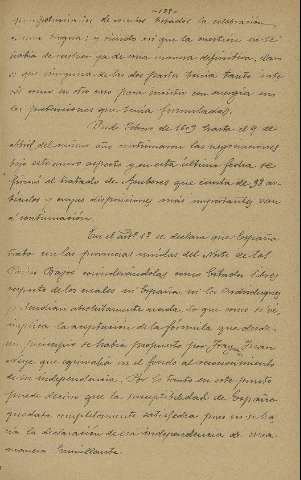 —129—
de una tregua; y siendo así que la cuestión
había de una manera definitiva,
que ninguna de las dos partes tenía tanto
como en otro caso para insistir con energía en
las pretensiones que tenía formuladas.
Desde Febrero de 1609 hasta el 9 de
Abril del mismo año continuaron las negociaciones
bajo este nuevo aspecto y en esta última fecha se
firmó el tratado de Amberes que consta de 38 ar-
tículos y cuyas disposiciones más importantes van
á continuación.
En el artº 1º se declara que España
trata con las provincias unidas del Norte de los
Países Bajos considerándolas como Estados libres
respecto de los cuales ni España ni los Archiduques
pretendían absolutamente nada, lo que como se vé,
implica la aceptación de la fórmula que desde
un principio se había propuesto por Fray Juan
Neyen que equivalía en el fondo al reconocimiento
de su independencia. Por lo tanto en este punto
puede decirse que la susceptibilidad de España
quedaba completamente satisfecha pues no se ha-
cía la declaración de esa independencia de una
manera humillante.